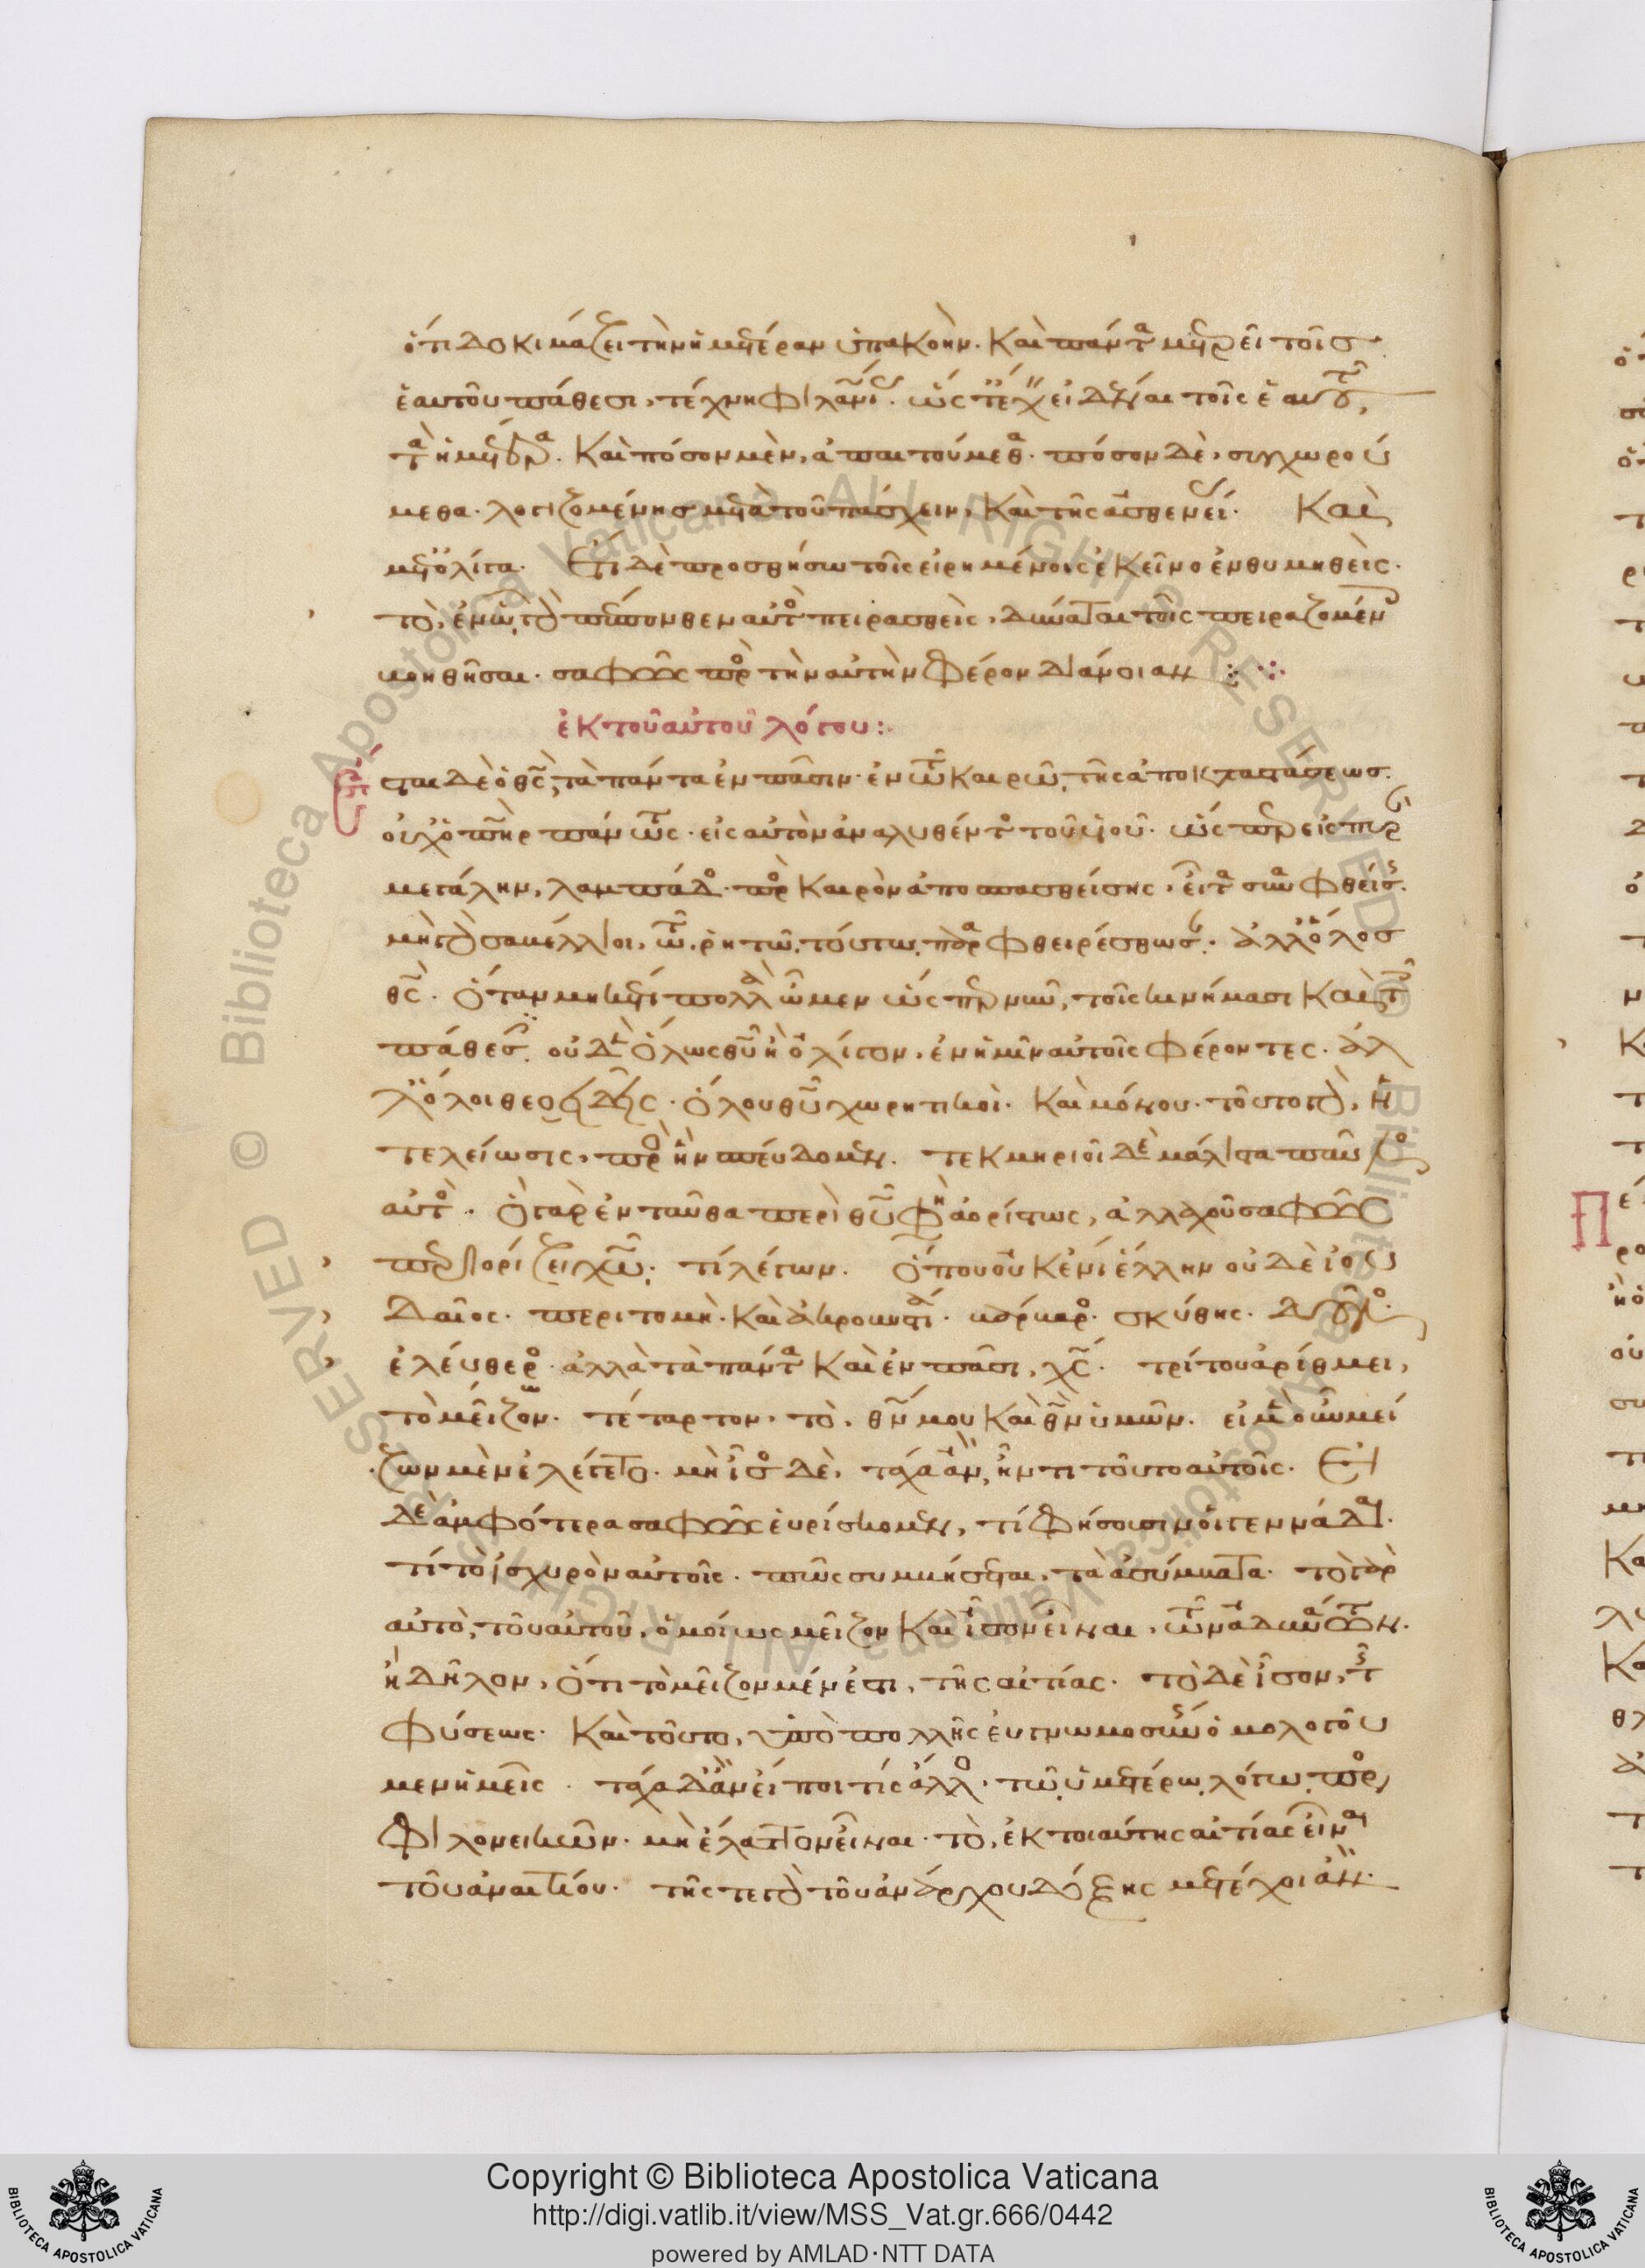 ὅτι δοκιμάζει τὴν ἡμετέραν ὑπακοὴν. Καὶ πάντα μετρεῖ τοῖς
ἑαυτοῦ πάθεσι, τέχνη φιλανθρωπίας. ὥστε ἔχειν εἰδέναι τοῖς ἑαυτοῦ,
τὰ ἡμέτερα. Καὶ πόσον μὲν, ἀπαιτούμεθα. πόσον δὲ, συγχωρού
μεθα. λογιζομένης μετὰ τοῦ πάσχειν, Καὶ τῆς ἀσθενείας. Καὶ
μετ' ὀλίγα. Ἔτι δὲ προσθήσω τοῖς εἰρημένοις ἐκεῖνο ἐνθυμηθεὶς.
τὸ, ἐν ᾧ γὰρ πέπονθεν αὐτὸς πειρασθεὶς, δύναται τοῖς πειραζομένοις
βοηθῆσαι. σαφῶς πρὸς τὴν αὐτὴν φέρον διάνοιαν :
ἐκ τοῦ αὐτοῦ λόγου :
Ἔσται δὲ ὁ θεὸς, τὰ πάντα ἐν πᾶσιν. ἐν τῷ καιρῷ τῆς ἀποκαταστάσεως.
οὐχ ὁ πατὴρ πάντως. εἰς αὐτὸν ἀναλυθέντος τοῦ υἱοῦ. ὥσπερ εἰς πυρὰν
μεγάλην, λαμπάδος πρὸς καιρὸν ἀποσπασθείσης, εἶτα συναφθείσης.
μὴ γὰρ σαβέλλιοι, τῷ ῥητῷ τούτῳ παραφθειρέσθωσαν. ἀλλ' ὅλος
θεὸς. Ὅταν μηκέτι πολλὰ ὦμεν ὥσπερ νῦν, τοῖς κινήμασι Καὶ τοῖς
πάθεσιν οὐδὲν ὅλως θεοῦ ἢ ὀλίγον, ἐν ἡμῖν αὐτοῖς φέροντες. ἀλ
λ' ὅλοι θεοειδεῖς. ὅλου θεοῦ χωρητικοὶ. Καὶ μόνου. τοῦτο γὰρ, ἡ
τελείωσις, πρὸς ἣν σπεύδομεν. τεκμηριοῖ δὲ μάλιστα παῦλος
αὐτὸς. Ὃ γὰρ ἐνταῦθα περὶ θεοῦ φησὶν ἀορίστως, ἀλλαχοῦ σαφῶς
περιορίζει χριστῷ. τί λέγων. Ὅπου οὐκ ἔνι ἕλλην οὐδὲ ἰου
δαῖος. περιτομὴ. Καὶ ἀκροβυστία. βάρβαρος. σκύθης. δοῦλος.
ἐλεύθερος. ἀλλὰ τὰ πάντα Καὶ ἐν πᾶσι, χριστὸς. τρίτον ἀρίθμει,
τὸ μεῖζον. τέταρτον, τὸ, θεόν μου Καὶ θεὸν ὑμῶν. εἰ μὲν οὖν μεί
ζων μὲν ἐλέγετο. μὴ ἴσος δὲ, τάχα ἂν, ἦν τι τοῦτο αὐτοῖς. Εἰ
δὲ ἀμφότερα σαφῶς εὑρίσκομεν, τί φήσουσιν οἱ γεννάδαι.
τί τὸ ἰσχυρὸν αὐτοῖς. πῶς συμβήσεται, τὰ ἀσύμβατα. τὸ γὰρ
αὐτὸ, τοῦ αὐτοῦ, ὁμοίως μεῖζον Καὶ ἴσον εἶναι, τῶν ἀδυνάτων.
ἢ δῆλον, ὅτι τὸ μεῖζον μέν ἐστι, τῆς αἰτίας. τὸ δὲ ἴσον, τῆς
φύσεως. Καὶ τοῦτο, ὑπὸ πολλῆς εὐγνωμοσύνης ὁμολογοῦ
μεν ἡμεῖς. τάχα δ' ἂν εἴποι τίς ἄλλος. τῷ ἡμετέρῳ λόγῳ προσ
φιλονεικῶν. μὴ ἔλαττον εἶναι. τὸ, ἐκ τοιαύτης αἰτίας εἶναι
τοῦ ἀναιτίου. τῆς τε γὰρ τοῦ ἀνάρχου δόξης μετέχοι ἂν.
Copyright © Biblioteca Apostolica Vaticana
http://digi.vatlib.it/view/MSS_Vat.gr.666/0442
powered by AMLAD·NTT DATA